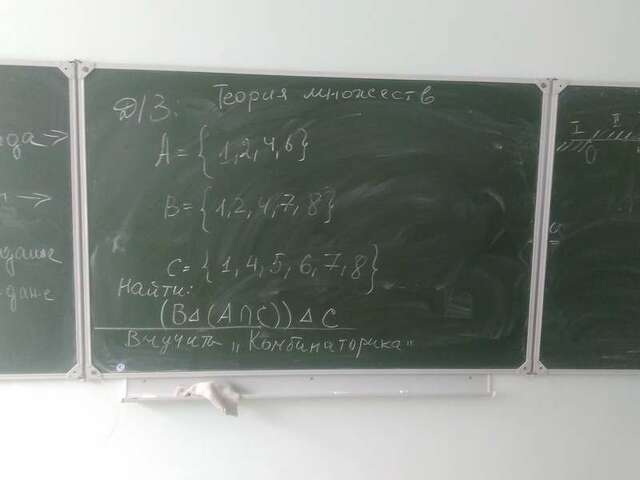 Д/З: Теория множеств
A = {1,2,4,6}
B = {1,2,4,7,8}
C = {1,4,5,6,7,8}
Найти:
(B Δ (A ∩ C)) Δ C
Выучить „Комбинаторика"
I II
0